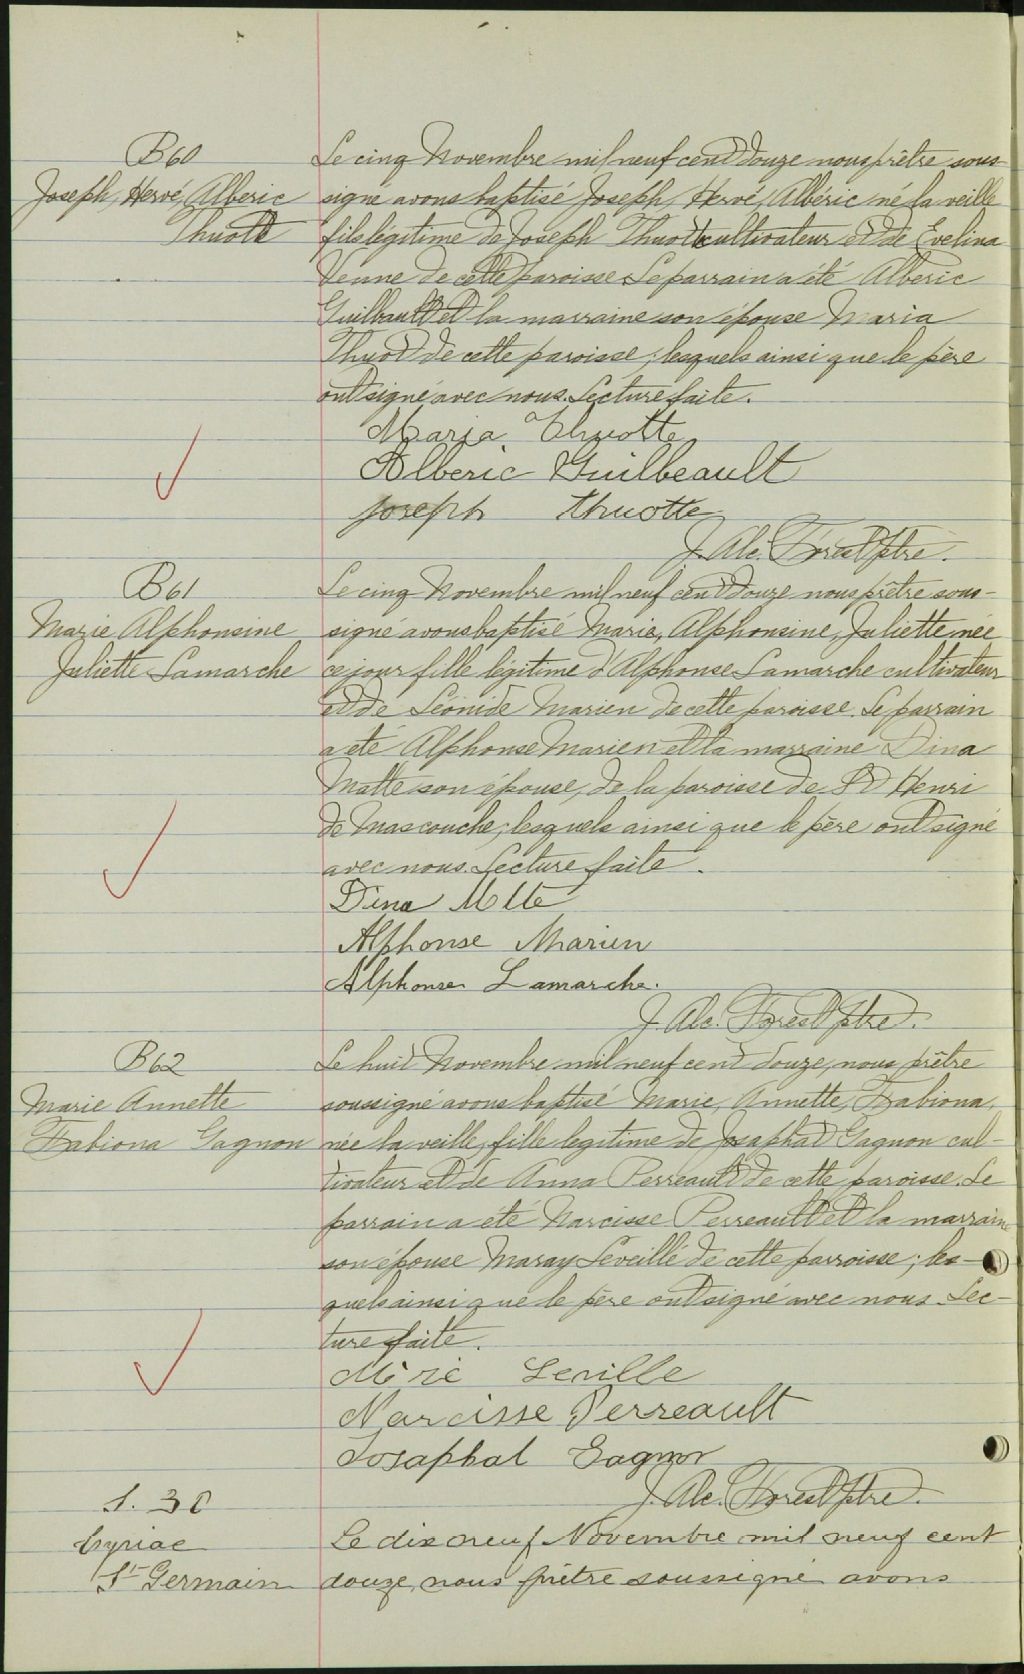 B60
Joseph, Hervé, Alberic
Thuott
Le cinq Novembre mil neuf cent douze nous prêtre sous-
signé avons baptisé Joseph, Hervé, Albéric né la veille
fils légitime de Joseph Thuott cultivateur et de Evelina
Venne de cette paroisse Le parrain a été Alberic
Guilbault et la marraine son épouse Maria
Thuot de cette paroisse; lesquels ainsi que le père
ont signé avec nous. Lecture faite.
Maria Thuotte
Alberic Guilbeault
Joseph Thuotte
J. Alc. Forest Ptre.
B61
Marie Alphonsine
Juliette Lamarche
Le cinq Novembre mil neuf cent douze nous prêtre sous-
signé avons baptisé Marie, Alphonsine, Juliette née
ce jour fille légitime d'Alphonse Lamarche cultivateur
et de Léonide Marien de cette paroisse. Le parrain
a été Alphonse Marien et la marraine Dina
Matte son épouse, de la paroisse de St Henri
de Mascouche; lesquels ainsi que le père ont signé
avec nous. Lecture faite.
Dina Mtte
Alphonse Marien
Alphonse Lamarche.
J. Alc. Forest Ptre.
B62
Marie Annette
Fabiona Gagnon
Le huit Novembre mil neuf cent douze, nous prêtre
soussigné avons baptisé Marie, Annette, Fabiona,
née la veille, fille légitime de Josaphat Gagnon cul-
tivateur et de Anna Perreault de cette paroisse. Le
parrain a été Narcisse Perreault et la marraine
son épouse Maray Léveillé de cette parroisse; les-
quels ainsi que le père ont signé avec nous. Lec-
ture faite.
Narcisse Perreault
Josaphat Gagnon
J. Alc. Forest Ptre.
S. 30
Cyriac
St Germain
Le dix neuf Novembre mil neuf cent
douze, nous prêtre soussigné avons